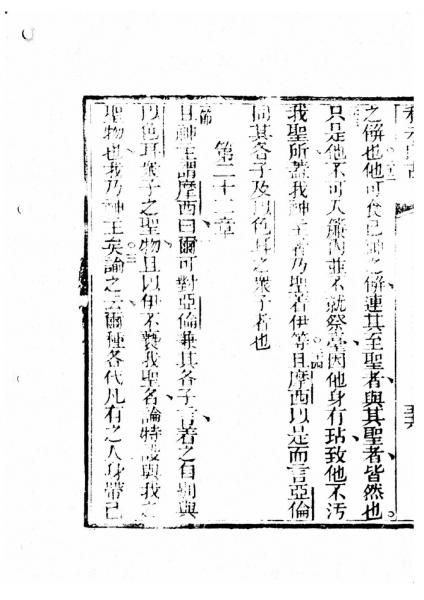 之餅也他可食己神之餅連其至聖者與其聖者皆然也
只是他不可入簾內並不就祭臺因他身有玷致他不污
我聖所蓋我神主者乃聖着伊等且摩西以是而言亞倫
同其各子及以色耳之衆子者也
第二十二章
且神主謂摩西曰爾可對亞倫兼其各子言着之自別與
以色耳衆子之聖物且以伊不褻我聖名論特設與我之
聖物也我乃神主矣諭之云爾種各代凡有之人身帶己